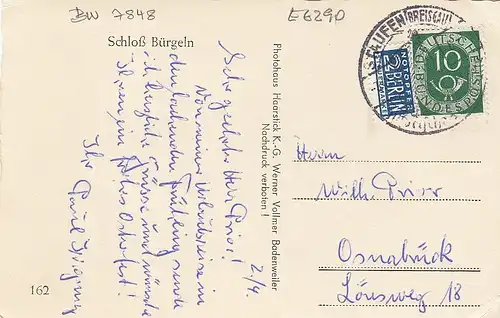 BW 7848
E6290
Schloß Bürgeln
2./4.
Sehr geehrter Herr Prior!
Von unserer Urlaubsreise in
den lachenden Frühling sende
ich herzliche Grüsse und wünsche
Ihnen ein frohes Osterfest!
Ihr Paul
162
Photohaus Haarstick K.-G. Werner Vollmer Badenweiler
Nachdruck verboten!
STAUFEN (BREISGAU)
NOTOPFER
2 BERLIN
STEUERMARKE
DEUTSCHE
BUNDESPOST
10
Herrn
Wilh. Prior
Osnabrück
18